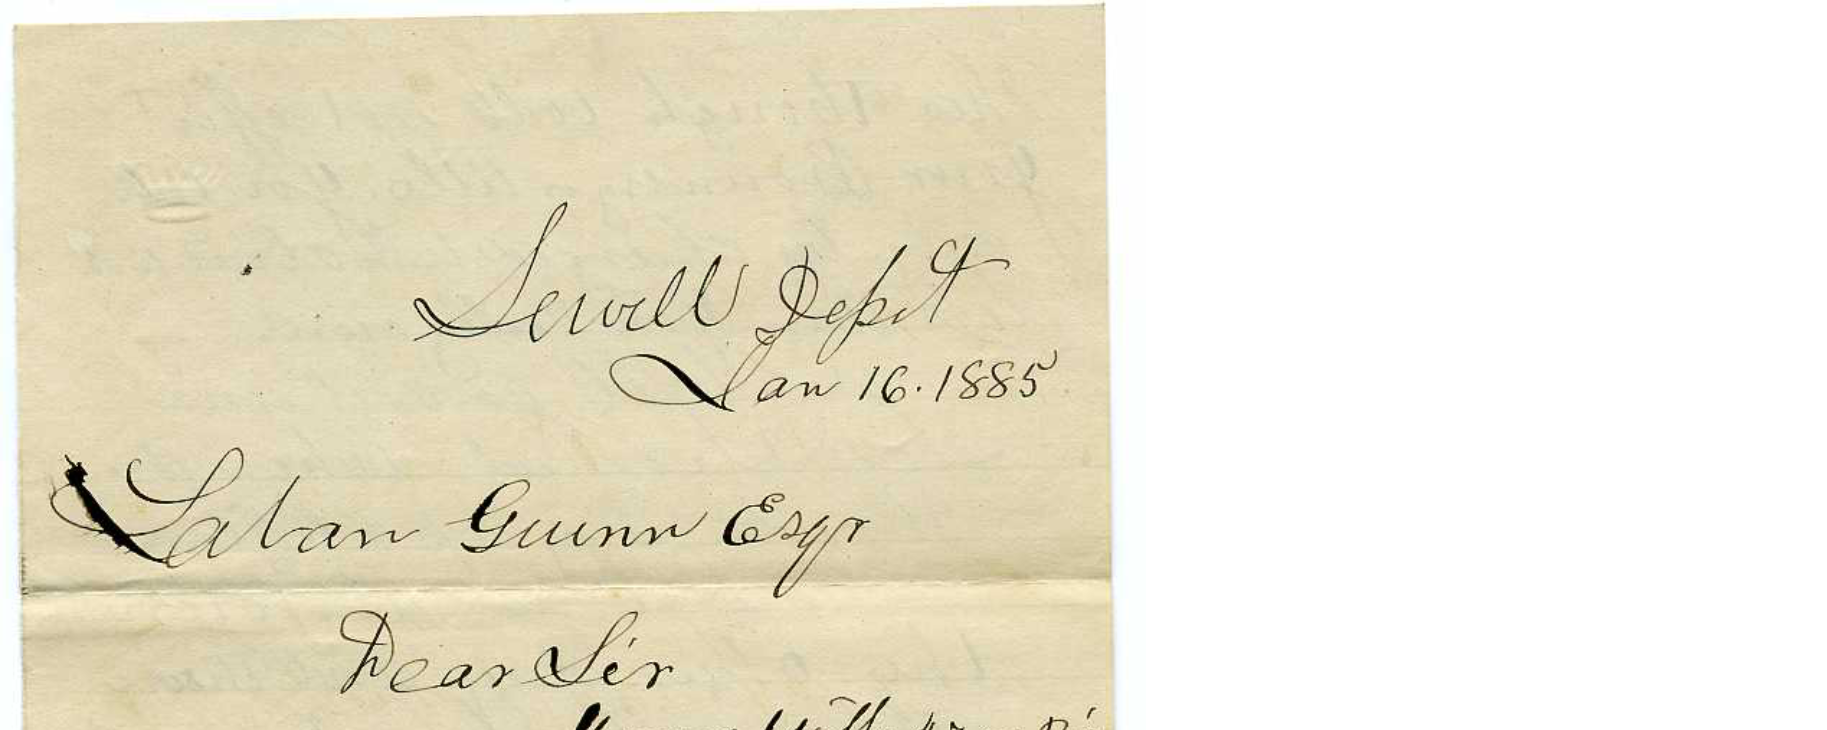 Sewell Depot
Jan 16. 1885
Laban Guinn Esqr
Dear Sir